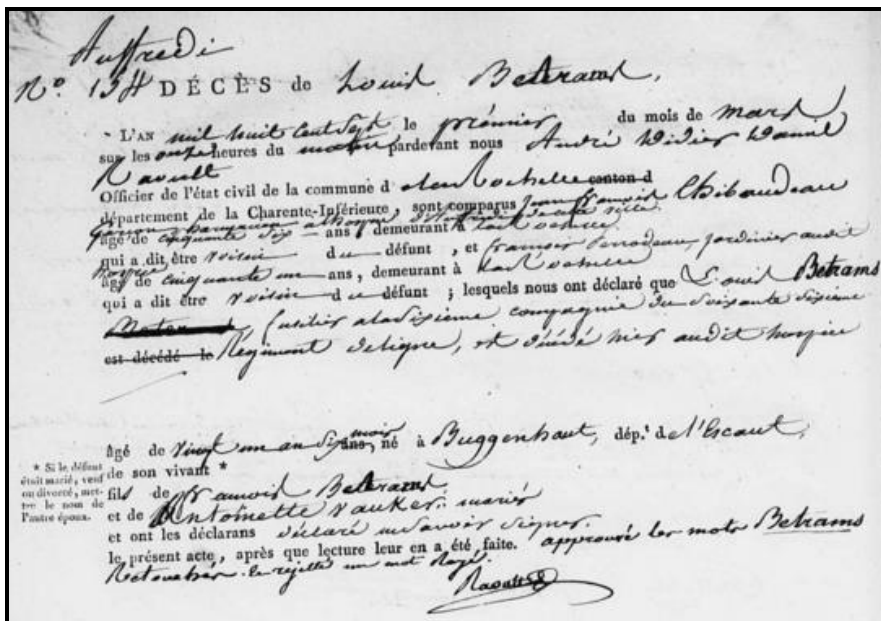 Auffredi
N.º 134 DÉCÈS de Louis Betrams.
L'AN mil huit cent sept le premier du mois de mars
sur les onze heures du matin pardevant nous André Didier Daniel
Raoult
Officier de l'état civil de la commune d la Rochelle canton d
département de la Charente-Inférieure, sont comparus Jean françois Thibaudeau
garçon à hospice, dit auffredi de cette ville
âgé de cinquante six ans, demeurant à la Rochelle
qui a dit être voisin du défunt, et françois jardinier audit
hospice
âgé de cinquante un ans, demeurant à la Rochelle
qui a dit être voisin du défunt; lesquels nous ont déclaré que Louis Betrams
fusilier a la sixieme compagnie du soixante sixieme
est décédé le Régiment de ligne, est décédé hier audit hospice
âgé de vingt un an six mois ans, né à Buggenhaut, dép.t de l'Escaut,
* Si le défunt
était marié, veuf
ou divorcé, met-
tre le nom de
l'autre époux.
de son vivant *
fils de françois Betrams
et de Antoinette Vauker: mariés
et ont les déclarans déclaré ne savoir signer.
le présent acte, après que lecture leur en a été faite. approuvé les mots Betrams
Retouchés. Je rejette un mot Rayé.
Raoult